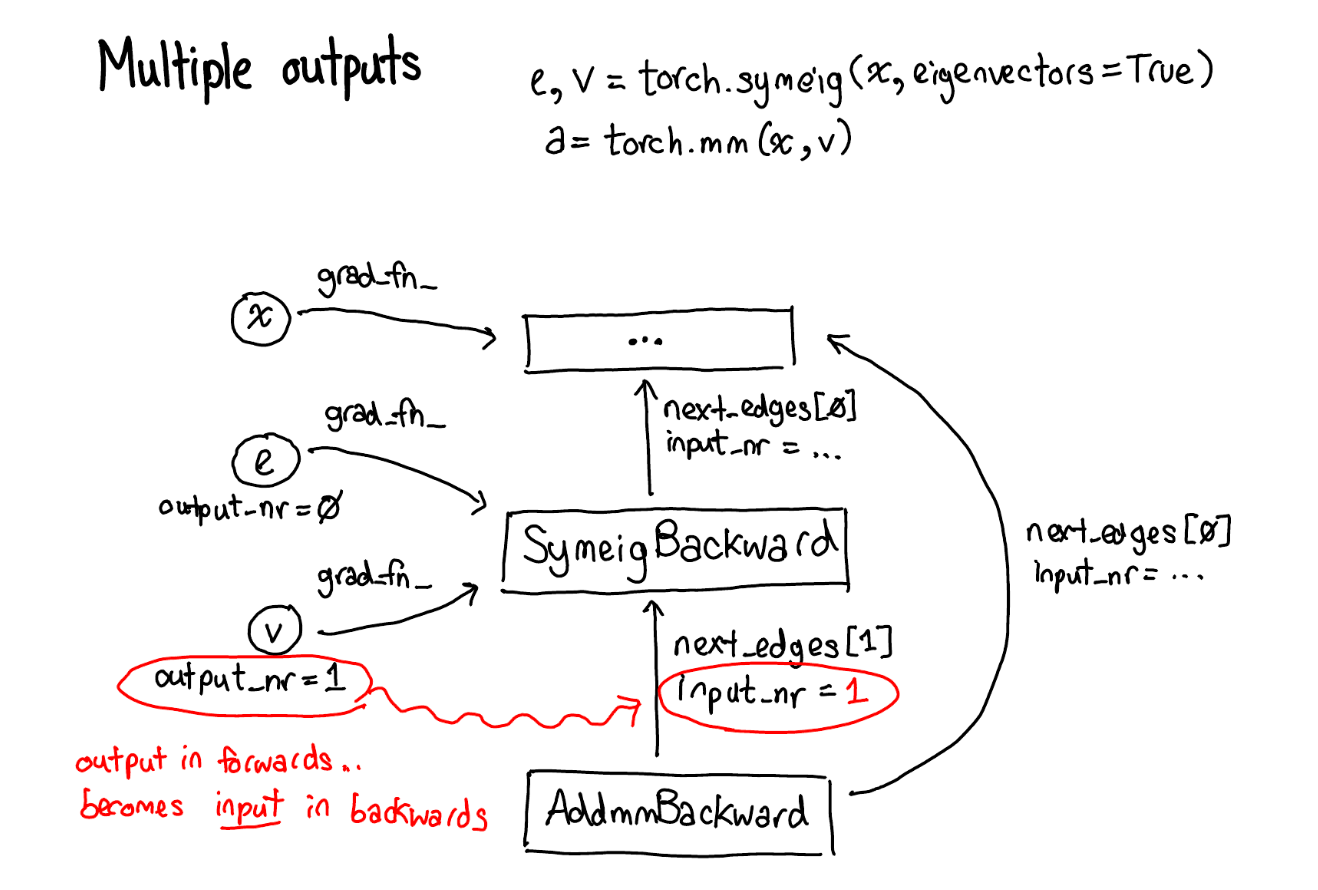 Multiple outputs
e, v = torch.symeig(x, eigenvectors=True)
a = torch.mm(x, v)
grad_fn_
x
...
next_edges[0]
input_nr = ...
grad_fn_
e
output_nr = 0
SymeigBackward
next_edges[0]
input_nr = ...
grad_fn_
v
output_nr = 1
next_edges[1]
input_nr = 1
output in forwards...
becomes input in backwards
AddmmBackward